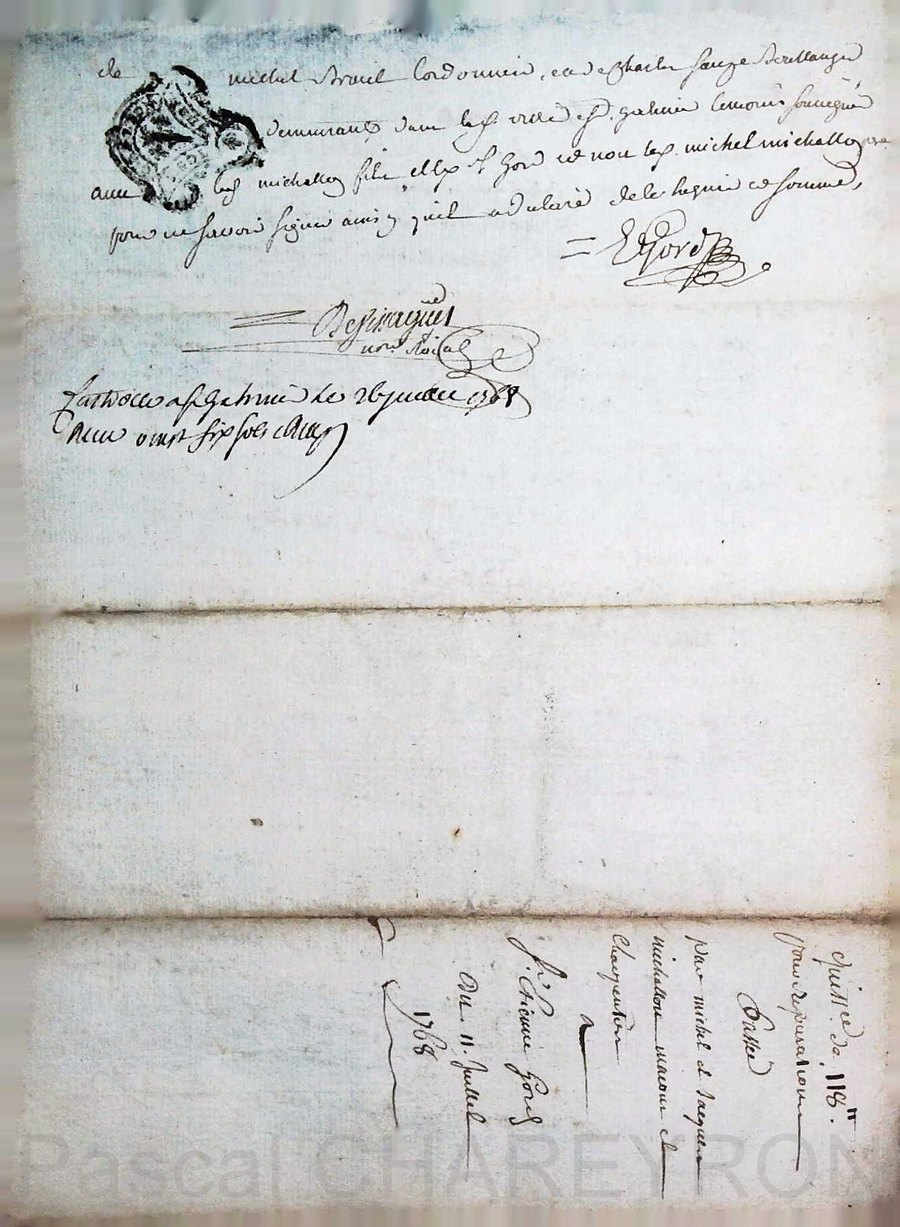 de michel Cordonnier, et de Charles Boullanger
demeurants dans lad. ville de st. galmier temoins soussignés
avec led. michallon fils et led. sr. Gord et non led. michel michallon père
pour ne savoir signer ainsi qu'il a declaré de ce requis et sommé,
= E Gord
nore. Roial
Controllé a st. Galmier le 26 juillet 1768
Reçu vingt six sols
Quittce. de 118".
pour reparations
Passée
par michel et Jacques
michallon macons et
Charpentier
A
Sr. Etienne Gord
Du 11. Juillet
1768
Pascal CHAREYRON